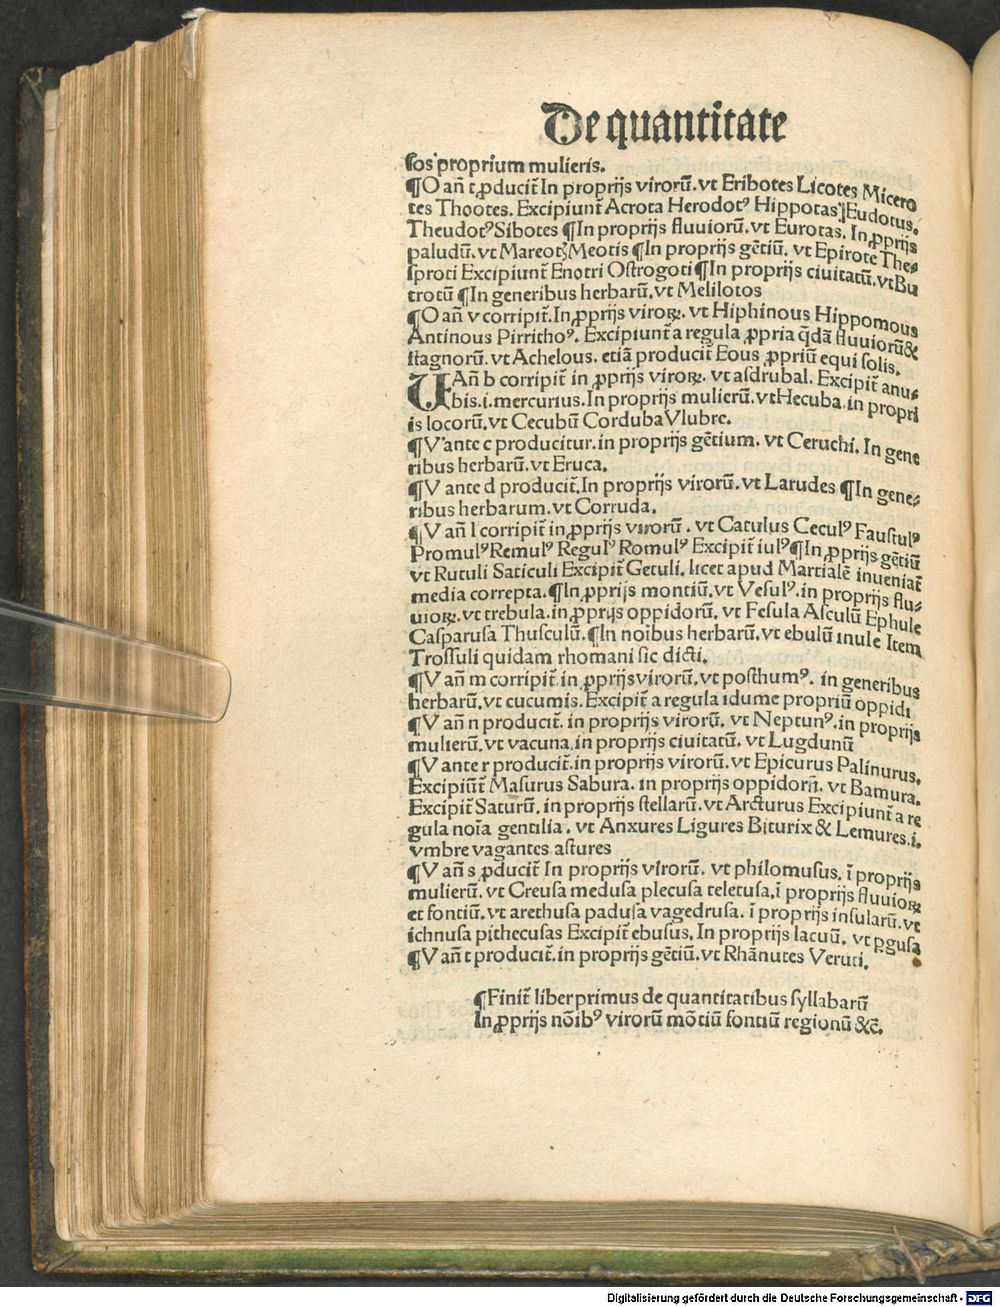 De quantitate
sos proprium mulieris.
¶O añ t ꝓducit᷑ In proprijs virorū. vt Eribotes Licotes Micero
tes Thootes. Excipiunt᷑ Acrota Herodotꝰ Hippotas Eudotus.
Theudotꝰ Sibotes ¶In proprijs fluuiorū. vt Eurotas. In ꝓprijs
paludū. vt Mareotꝫ Meotis ¶In proprijs gētiū. vt Epirote The⸗
sproti Excipiunt᷑ Enotri Ostrogoti ¶In proprijs ciuitatū. vt Bu
trotū ¶In generibus herbarū. vt Melilotos
¶O añ v corripit᷑. In ꝓprijs viroꝝ. vt Hiphinous Hippomous
Antinous Pirrithoꝰ. Excipiunt᷑ a regula ꝓpria q̄dā fluuiorū &
stagnorū. vt Achelous. etiā producit᷑ Eous ꝓpriū equi solis.
VAñ b corripit᷑ in ꝓprijs viroꝝ. vt asdrubal. Excipit᷑ anu⸗
bis. i. mercurius. In proprijs mulierū. vt Hecuba. in propri
is locorū. vt Cecubū Corduba Vlubre.
¶V ante c producitur. in proprijs gētium. vt Ceruchi. In gene
ribus herbarū. vt Eruca.
¶V ante d producit᷑. In proprijs virorū. vt Larudes ¶In gene⸗
ribus herbarum. vt Corruda.
¶V añ l corripit᷑ in ꝓprijs virorū. vt Catulus Ceculꝰ Faustulꝰ
Promulꝰ Remulꝰ Regulꝰ Romulꝰ Excipit᷑ iulꝰ ¶In ꝓprijs gētiū
vt Rutuli Saticuli Excipit᷑ Getuli. licet apud Martialē inueniat᷑
media correpta. ¶In ꝓprijs montiū. vt Vesulꝰ. in proprijs flu⸗
uioꝝ. vt trebula. in ꝓprijs oppidorū. vt Fesula Asculū Ephule
Casparusa Thusculū. ¶In noībus herbarū. vt ebulū inule Item
Trossuli quidam rhomani sic dicti.
¶V añ m corripit᷑ in ꝓprijs virorū. vt posthumꝰ. in generibus
herbarū. vt cucumis. Excipit᷑ a regula idume propriū oppidi
¶V añ n producit᷑. in proprijs virorū. vt Neptunꝰ. in proprijs
mulierū. vt vacuna. in proprijs ciuitatū. vt Lugdunū
¶V ante r producit᷑. in proprijs virorū. vt Epicurus Palinurus.
Excipiūt᷑ Masurus Sabura. in proprijs oppidorū. vt Bamura.
Excipit᷑ Saturū. in proprijs stellarū. vt Arcturus Excipiunt᷑ a re
gula noīa gentilia. vt Anxures Ligures Biturix & Lemures. i.
vmbre vagantes astures
¶V añ s ꝓducit᷑ In proprijs virorū. vt philomusus. ī proprijs
mulierū. vt Creusa medusa plecusa teletusa. ī proprijs fluuioꝝ
et fontiū. vt arethusa padusa vagedrusa. ī proprijs insularū. vt
ichnusa pithecusas Excipit᷑ ebusus. In proprijs lacuū. vt ꝑgusa
¶V añ t producit᷑. in proprijs gētiū. vt Rhānutes Veruti.
¶Finit᷑ liber primus de quantitatibus syllabarū
In ꝓprijs nōibꝰ virorū mōtiū fontiū regionū &c̄.
Digitalisierung gefördert durch die Deutsche Forschungsgemeinschaft - DFG